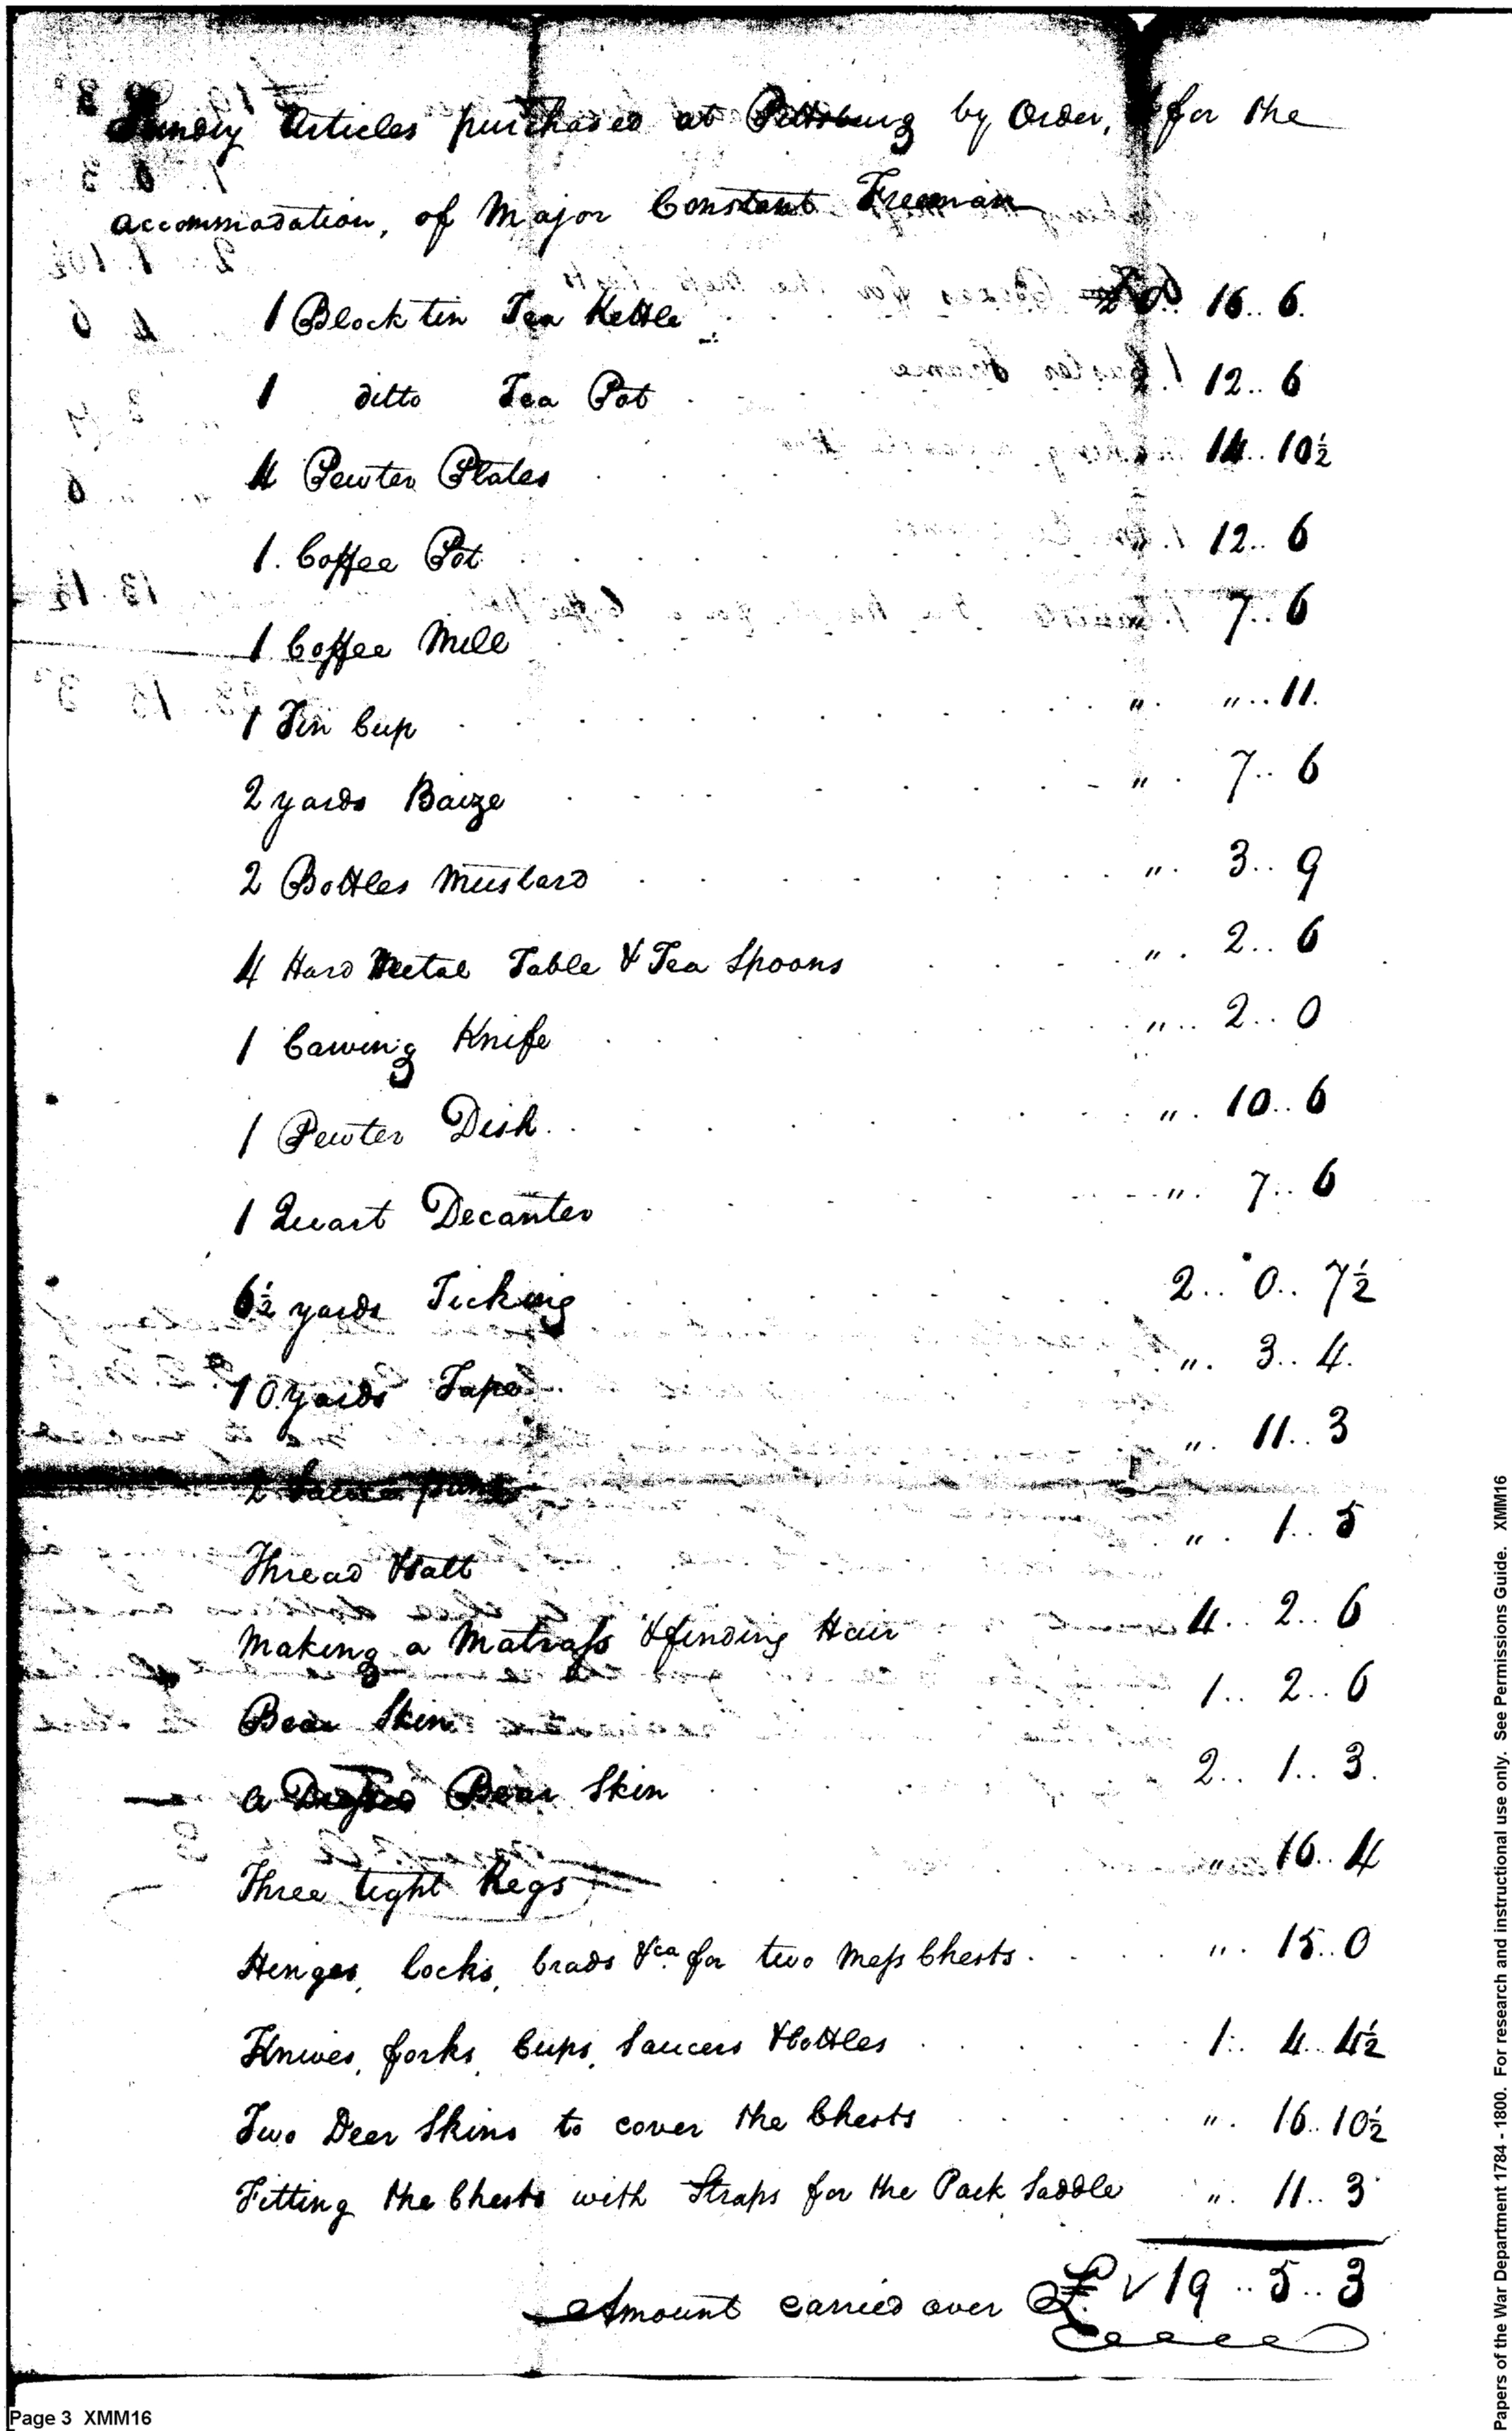 Sundry Articles purchased at Pittsburg by Order, for the
accommodation, of Major Constant Freeman
1 Block tin Tea Kettle £ 0.. 16.. 6.
1 ditto Tea Pot . 12.. 6
4 Pewter Plates . . . 14.. 10½
1. Coffee Pot . . . . 12.. 6
1 Coffee Mill . . 7.. 6
1 Tin Cup . . . . . . . . . ". "..11.
2 yards Baize . . . . . . . - ". 7.. 6
2 Bottles Mustard . . . . . . . . ". 3.. 9
4 Hard Metal Table & Tea Spoons . . . . ". 2.. 6
1 Cawing Knife . . . . . . . ".. 2.. 0
1 Pewter Dish . . . . . . . . ". 10.. 6
1 Quart Decanter . . . . . . . ". 7.. 6
6½ yards Ticking . . . . . . . 2.. 0.. 7½
10 yards Tape ". 3.. 4.
2 pans ". 11.. 3
Thread ". 1.. 5
Making a Matrass & finding Hair 4.. 2.. 6
Bear Skin 1.. 2.. 6
a Bear Skin . . 2.. 1.. 3.
Three tight Kegs . . . " 16.. 4
Hinges, locks, brads &ca. for two Mess Chests . . . . ". 15.. 0
Knives, forks, Cups, Saucers & bottles . . . . . 1.. 4.. 4½
Two Deer Skins to cover the Chests . . . . . ". 16.. 10½
Fitting the Chests with Straps for the Pack Saddle ". 11.. 3
Amount carried over £ 19.. 5.. 3
Page 3 XMM16
Papers of the War Department 1784 - 1800. For research and instructional use only. See Permissions Guide. XMM16